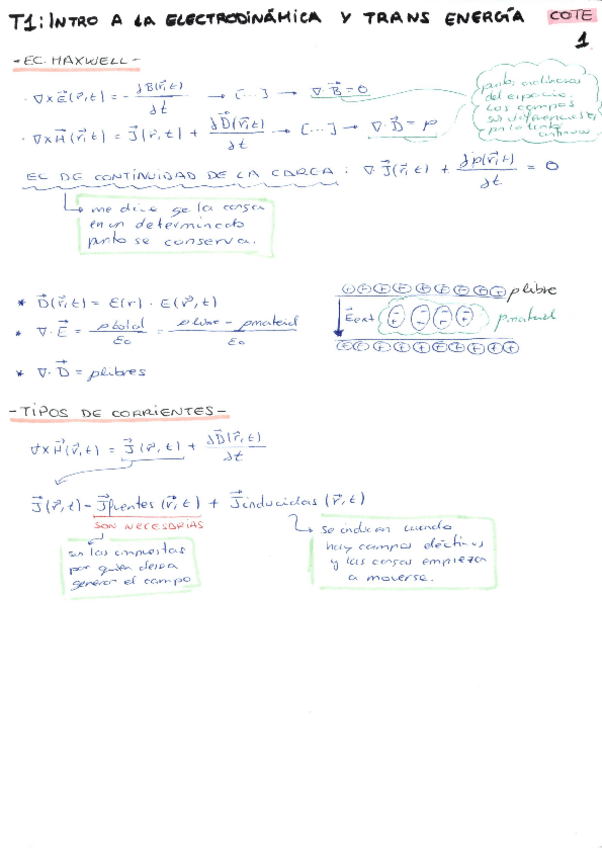 T1: INTRO A LA ELECTRODINÁMICA Y TRANS ENERGÍA COTE
1
- EC. MAXWELL -
· ∇×E⃗(r⃗,t) = - ∂B⃗(r⃗,t)/∂t → [...] → ∇·B⃗ = 0
puntos ordinarios
del espacio.
Los campos
son diferenciables,
por lo tanto
continuos
· ∇×H⃗(r⃗,t) = J⃗(r⃗,t) + ∂D⃗(r⃗,t)/∂t → [...] → ∇·D⃗ = ρ
EC DE CONTINUIDAD DE LA CARGA : ∇·J⃗(r⃗,t) + ∂ρ(r⃗,t)/∂t = 0
me dice qe la carga
en un determinado
punto se conserva.
* D⃗(r⃗,t) = ε(r) · E(r⃗,t)
* ∇·E⃗ = ρtotal/ε₀ = ρlibre - ρmaterial/ε₀
* ∇·D⃗ = ρlibres
ρlibre
E⃗ext
ρmaterial
- TIPOS DE CORRIENTES -
∇×H⃗(r⃗,t) = J⃗(r⃗,t) + ∂D⃗(r⃗,t)/∂t
J⃗(r⃗,t) = J⃗fuentes(r⃗,t) + J⃗inducidas(r⃗,t)
SON NECESARIAS
son las impuestas
por quien desea
generar el campo
se inducen cuando
hay campos eléctricos
y las cargas empiezan
a moverse.